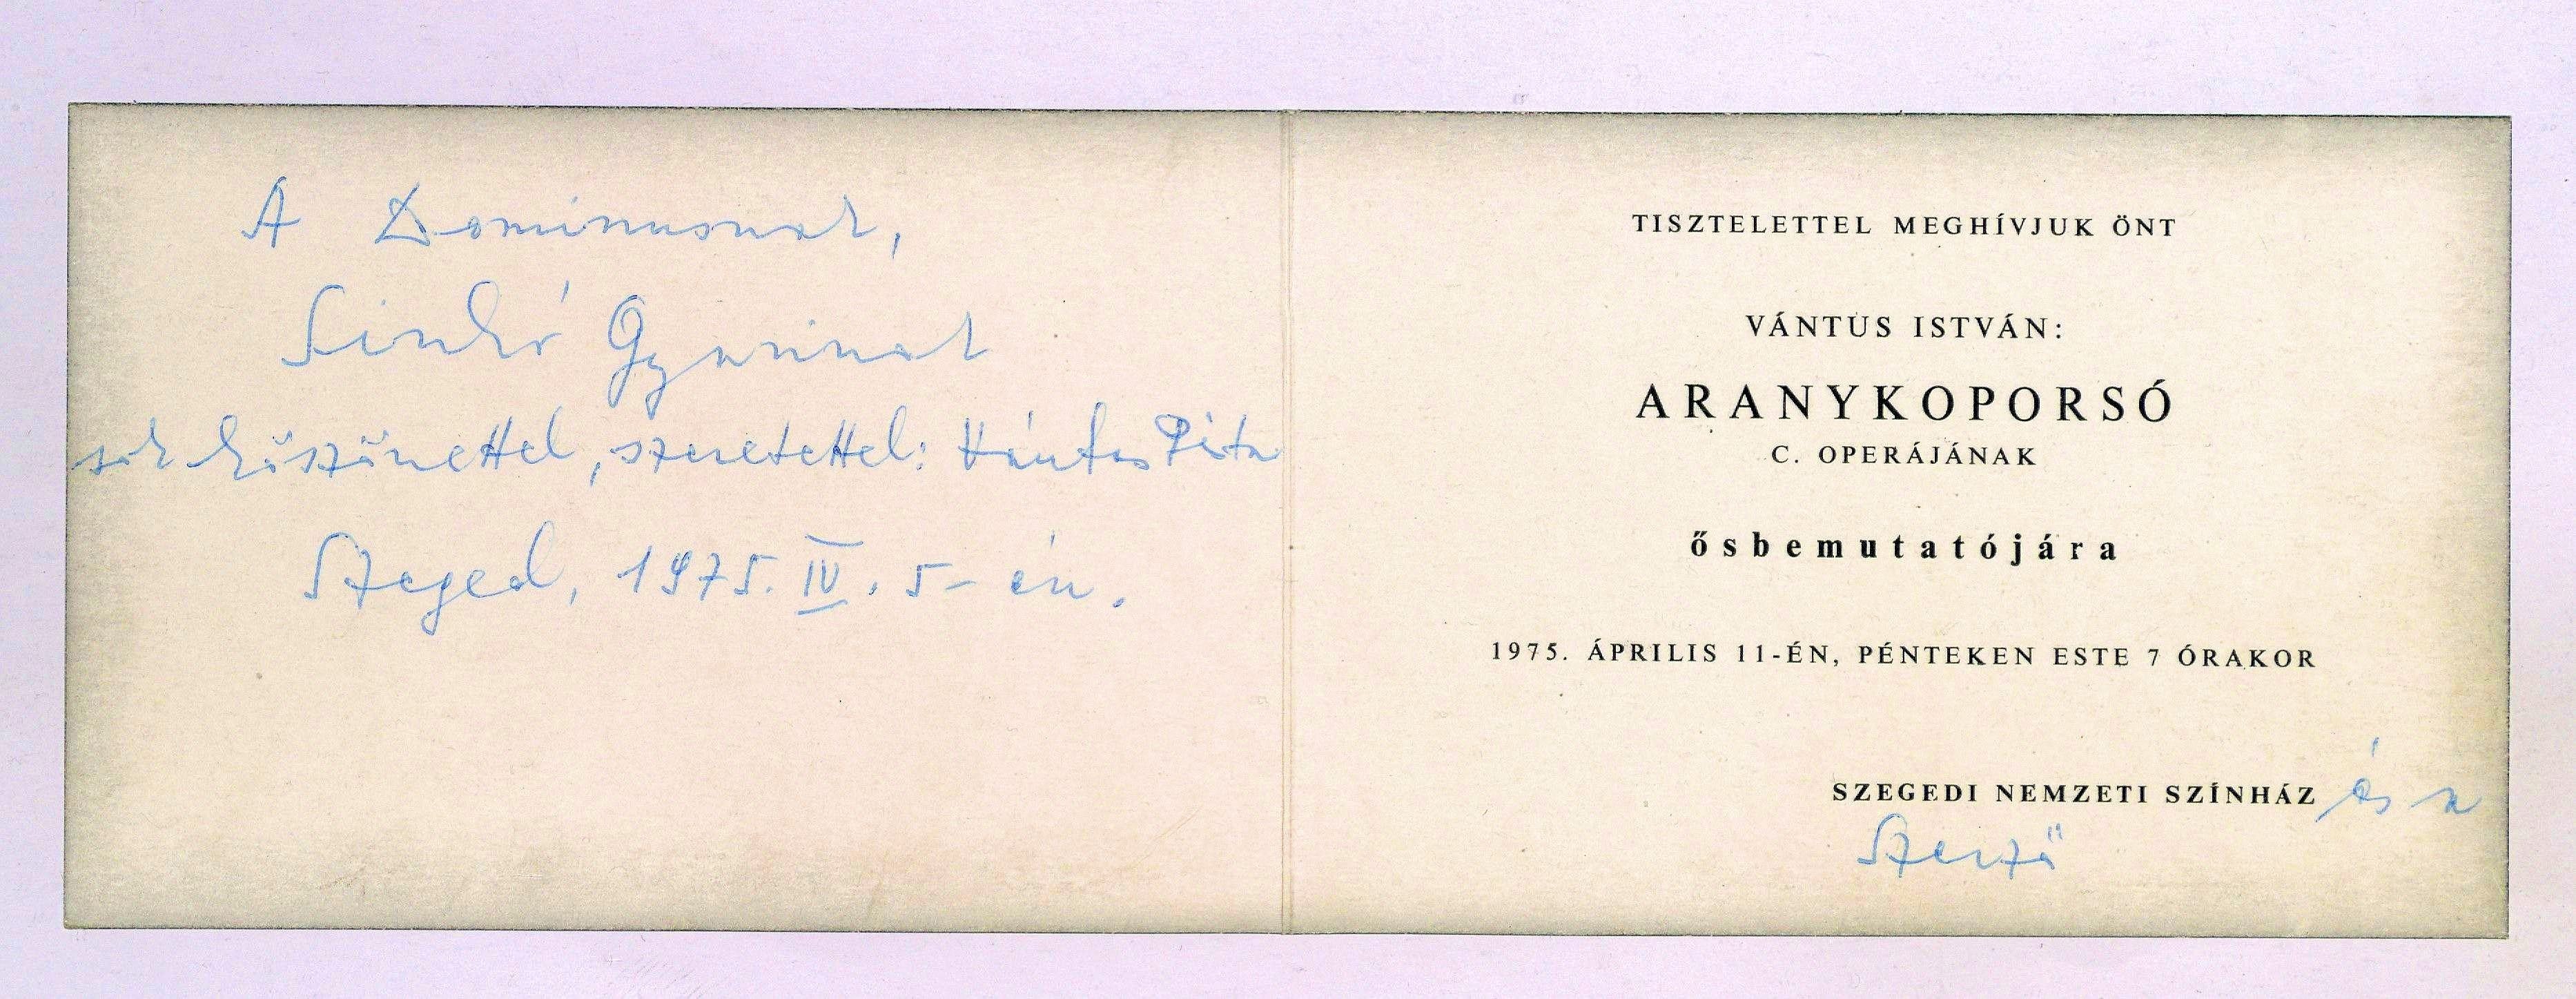 A Dominusnak,
Sinkó Gyurinak
sok köszönettel, szeretettel: Vántus Pista
Szeged, 1975. IV. 5-én.
TISZTELETTEL MEGHÍVJUK ÖNT
VÁNTUS ISTVÁN:
ARANYKOPORSÓ
C. OPERÁJÁNAK
ősbemutatójára
1975. ÁPRILIS 11-ÉN, PÉNTEKEN ESTE 7 ÓRAKOR
SZEGEDI NEMZETI SZÍNHÁZ és a
Szerző